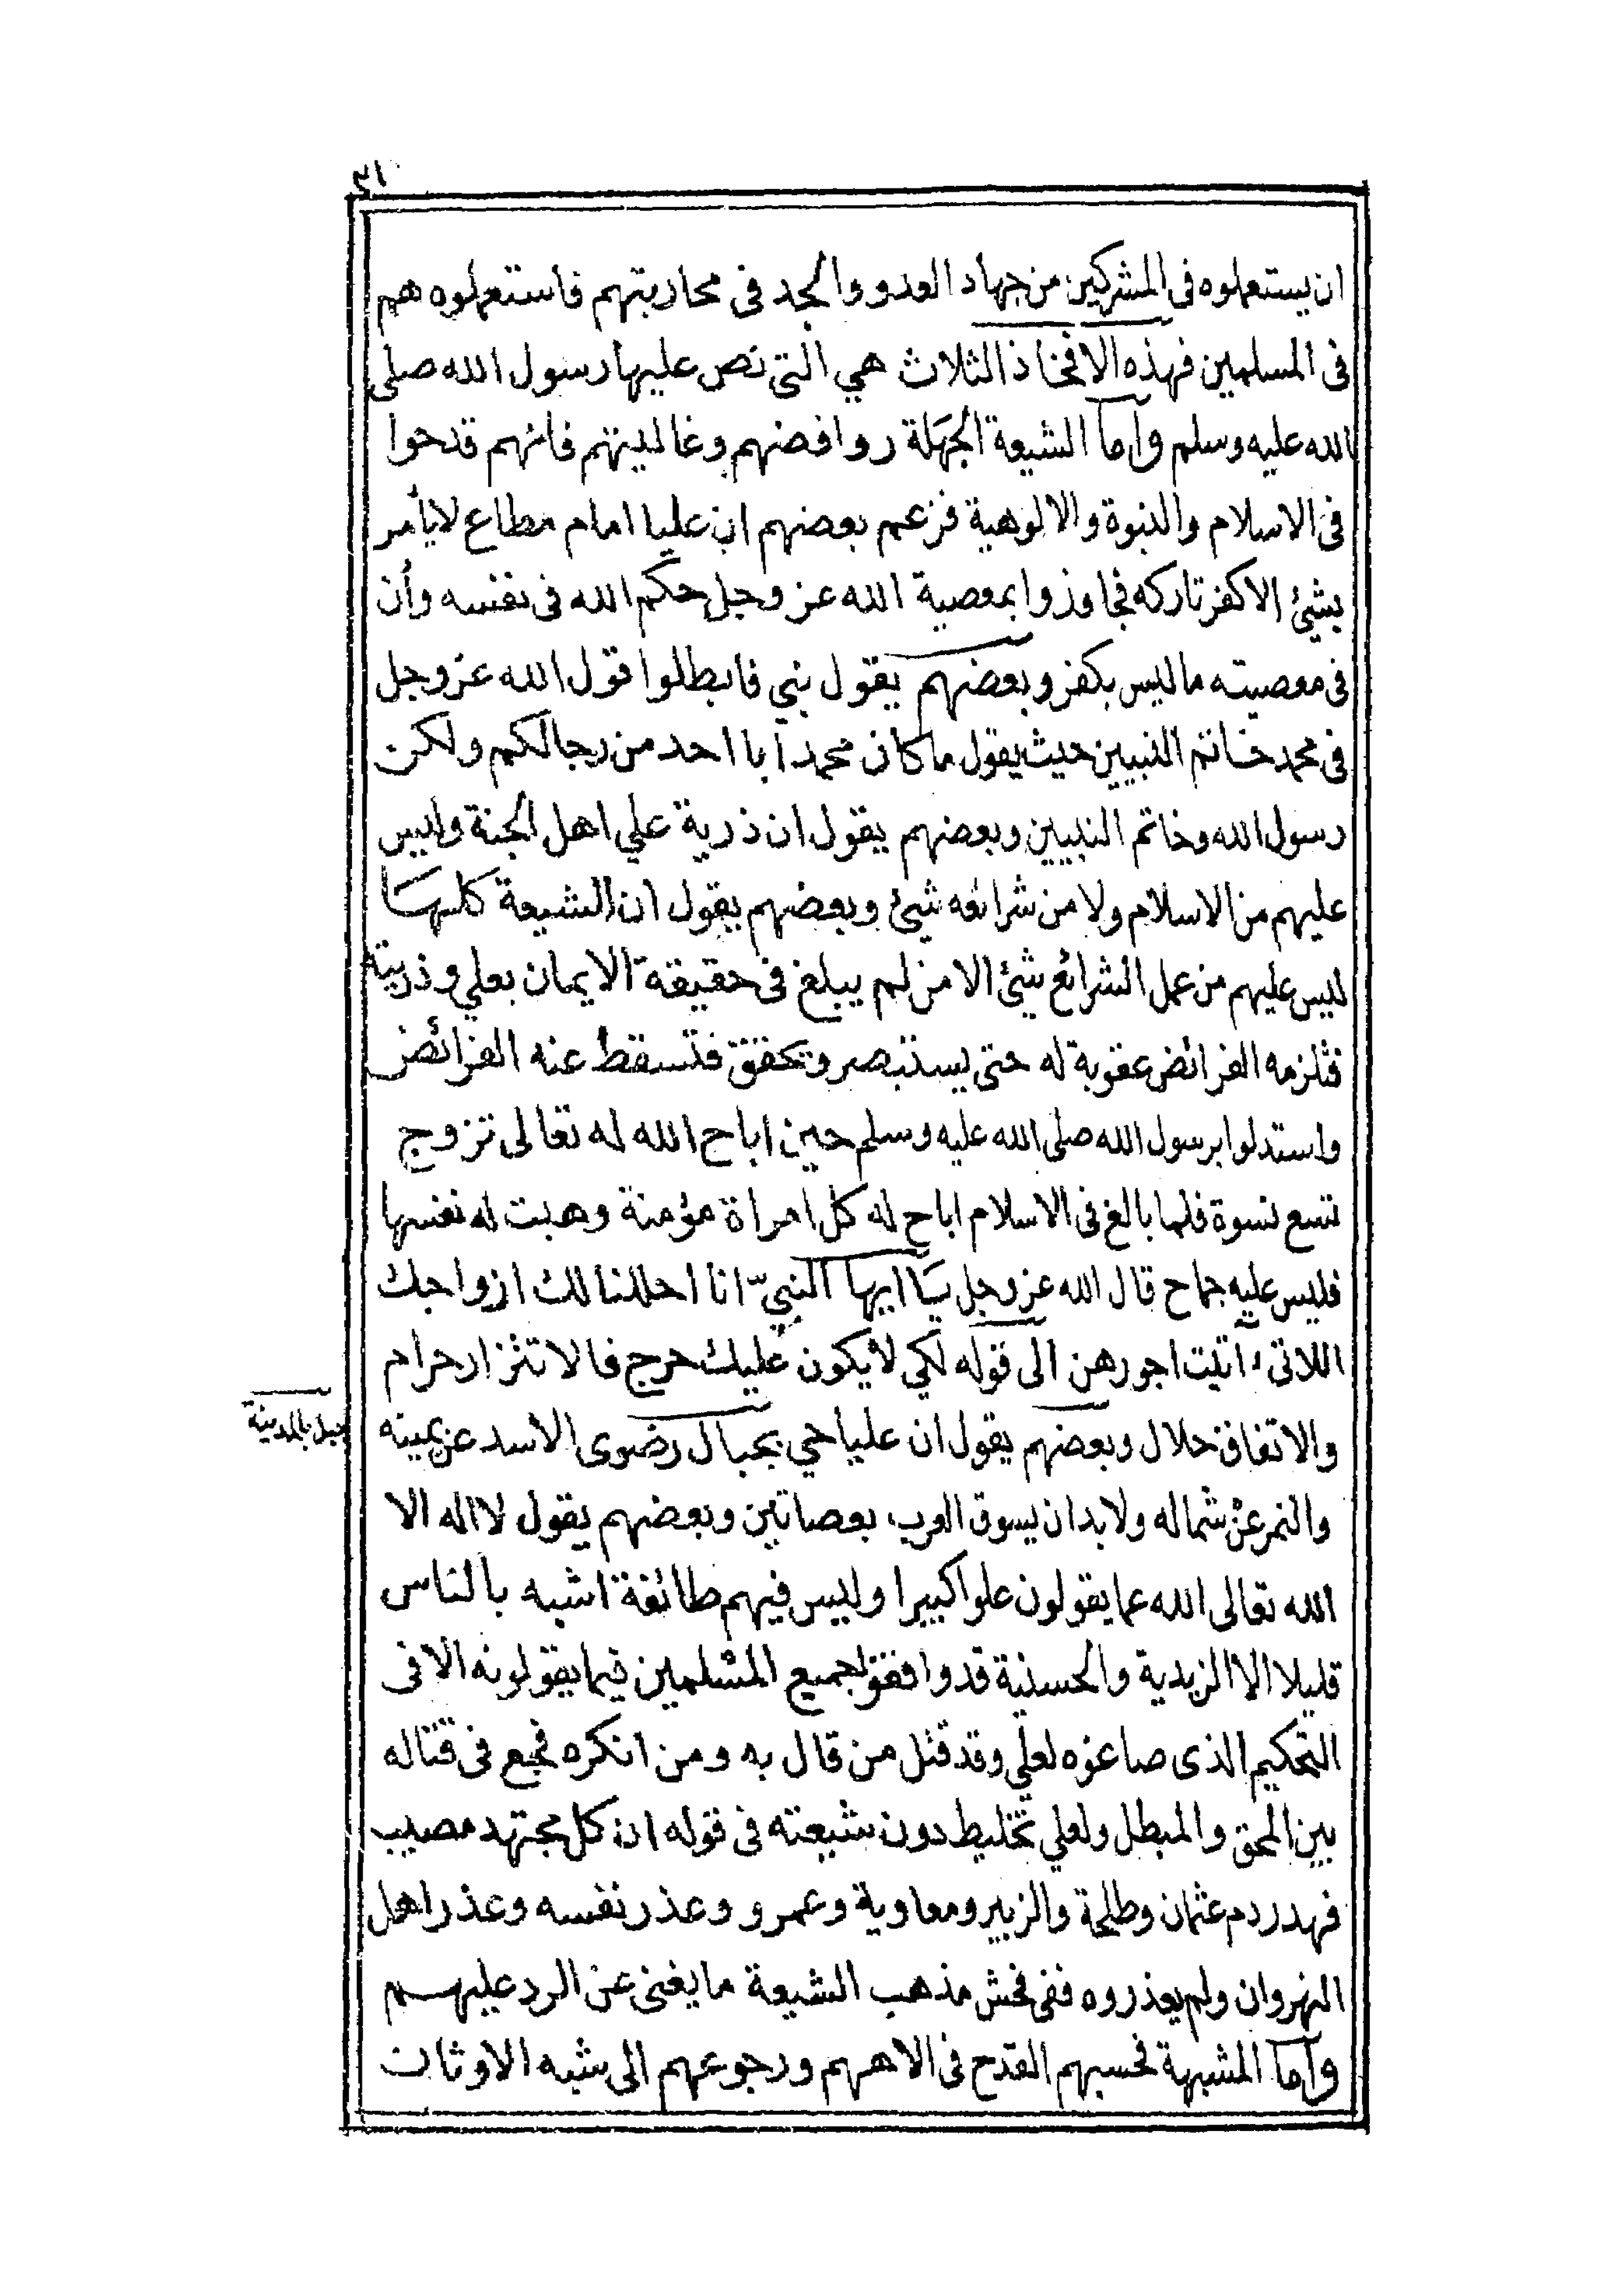 ٣١
ان يستعملوه في المشركين من جهاد العدو والجد في محاربتهم فاستعملوه هم
في المسلمين فهذه الافخاذ الثلاث هي التي نص عليها رسول الله صلى
الله عليه وسلم وأما الشيعة الجهلة روافضهم وغالبيتهم فانهم قدحوا
في الاسلام والنبوة والالوهية فزعم بعضهم ان عليا امام مطاع لا يأمر
بشيئ الا كفر تاركه فجاوزوا بمعصية الله عز وجل حكم الله في نفسه وأن
في معصيته ما ليس بكفر وبعضهم يقول نبي فابطلوا قول الله عز وجل
في محمد خاتم النبيين حيث يقول ما كان محمد أبا احد من رجالكم ولكن
رسول الله وخاتم النبيين وبعضهم يقول ان ذرية علي اهل الجنة وليس
عليهم من الاسلام ولا من شرائعه شيئ وبعضهم يقول ان الشيعة كلها
ليس عليهم من عمل الشرائع شيئ الا من لم يبلغ في حقيقة الايمان بعلي وذريته
فتلزمه الفرائض عقوبة له حتى يستبصر وتحقق فتسقط عنه الفرائض
واستدلوا برسول الله صلى الله عليه وسلم حين اباح الله له تعالى تزوج
تسع نسوة فلما بالغ في الاسلام اباح له كل امراة مؤمنة وهبت له نفسها
فليس عليه جماح قال الله عز وجل يا ايها النبي انا احللنا لك ازواجك
اللاتي ءاتيت اجورهن الى قوله لكي لا يكون عليك حرج فالاتثزار حرام
والاتفاق حلال وبعضهم يقول ان عليا حي بجبال رضوى الاسد عن يمينه
جبل بالمدينة
والنمر عن شماله ولا بد ان يسوق العرب بعصاتين وبعضهم يقول لا اله الا
الله تعالى الله عما يقولون علوا كبيرا وليس فيهم طائفة اشبه بالناس
قليلا الا الزيدية والحسنية قد وافقوا جميع المسلمين فيما يقولونه الا في
التحكيم الذى صاعزه لعلي وقد قتل من قال به ومن انكره فجمع في قتاله
بين المحق والمبطل ولعلي تخليط دون شيعته في قوله ان كل مجتهد مصيب
فهدر دم عثمان وطلحة والزبير ومعاوية وعمرو وعذر نفسه وعذر اهل
النهروان ولم يعذروه ففي فحش مذهب الشيعة ما يغني عن الرد عليهم
وأما المشبهة فحسبهم القدح في الاههم ورجوعهم الى شبه الاوثان